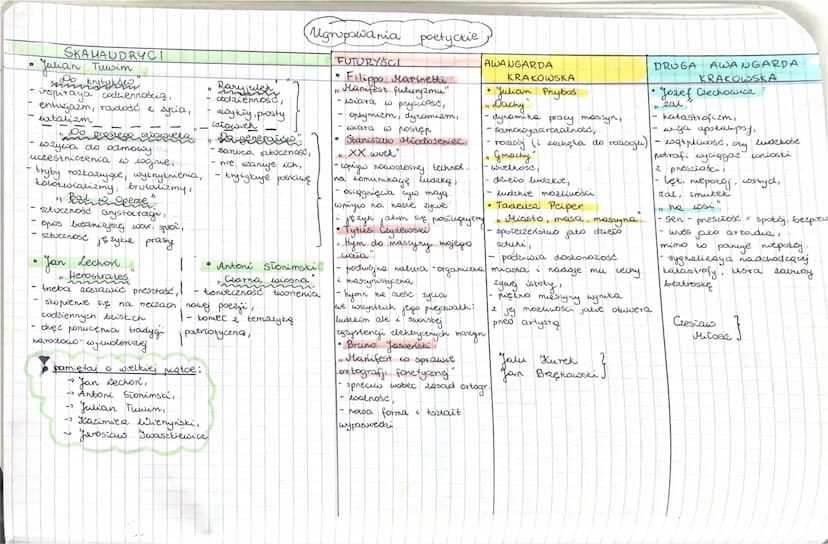 Ugrupowania poetyckie
SKAMANDRYCI
• Julian Tuwim
"Do krytyków"
- inspiracja codziennością,
entuzjazm, radość z życia,
witalizm
"Do prostego człowieka"
- wzywa do odmowy
uczestniczenia w wojnie,
- tryby rozkazujące, wykrzyknienia,
kolokwializmy, brutalizmy,
"Bal w Operze"
- sztuczność arystokracji,
- opis
- sztuczność języka prasy
- codzienność,
- zwykły, prosty
człowiek
"Do generałów"
- zarzuca sztuczność,
- nie szanuje ich,
- krytykuje postawę
• Jan Lechoń
"Herostrates"
- trzeba zostawić przeszłość,
- skupienie się na rzeczach
codziennych bliskich
- chęć porzucenia tradycji
narodowo-wyzwoleńczej
• Antoni Słonimski
"Czarna wiosna"
- konieczność tworzenia
nowej poezji,
- koniec z tematyką
patriotyczną,
pamiętaj o wielkiej piątce:
→ Jan Lechoń,
→ Antoni Słonimski,
→ Julian Tuwim,
→ Kazimierz Wierzyński,
→ Jarosław Iwaszkiewicz
FUTURYŚCI
• Filippo Marinetti
"Manifest futuryzmu"
- wiara w przyszłość,
- optymizm, dynamizm,
- wiara w postęp
Stanisław Młodożeniec
"XX wiek"
- wpływ nowoczesnej technol.
na komunikację ludzką,
- osiągnięcia tego mają
wpływ na nasze życie
- język jakim się posługujemy
• Tytus Czyżewski
"Hymn do maszyny mojego
ciała"
- podwójna natura - organiczna
i maszynistyczna,
- hymn na cześć życia
we wszystkich jego przejawach:
ludzkim ale i swoistej
egzystencji elektrycznych maszyn
• Bruno Jasieński
"Manifest w sprawie
ortografii fonetycznej"
- sprzeciw wobec zasad ortogr.
- wolność,
- nowa forma i kształt
wypowiedzi
AWANGARDA
KRAKOWSKA
• Julian Przyboś
"Dachy"
- dynamika pracy maszyn,
- samowystarczalność,
- rozwój (i zachęta do rozwoju)
"Gmachy"
- wielkość,
- dzieło ludzkie,
- ludzkie możliwości
• Tadeusz Peiper
"Miasto, masa, maszyna"
- społeczeństwo jako dzieło
sztuki,
- podziwia doskonałość
miasta i nadaje mu cechy
żywej istoty,
- piękno maszyny wynika
z jej możliwości jakie otwiera
przed artystą
Jalu Kurek
Jan Brzękowski
DRUGA AWANGARDA
KRAKOWSKA
• Józef Czechowicz
"żal"
- katastrofizm,
- wizja apokalipsy,
- wątpliwość, czy ludzkość
potrafi wyciągać wnioski
z przeszłości,
- lęk, niepokój, wstyd,
żal, smutek
"na wsi"
- sen - przeszłość = spokój,
- wieś jako arkadia,
mimo to panuje niepokój
- sygnalizacja nadchodzącej
katastrofy, która zaburzy
beztroskę
Czesław
Miłosz